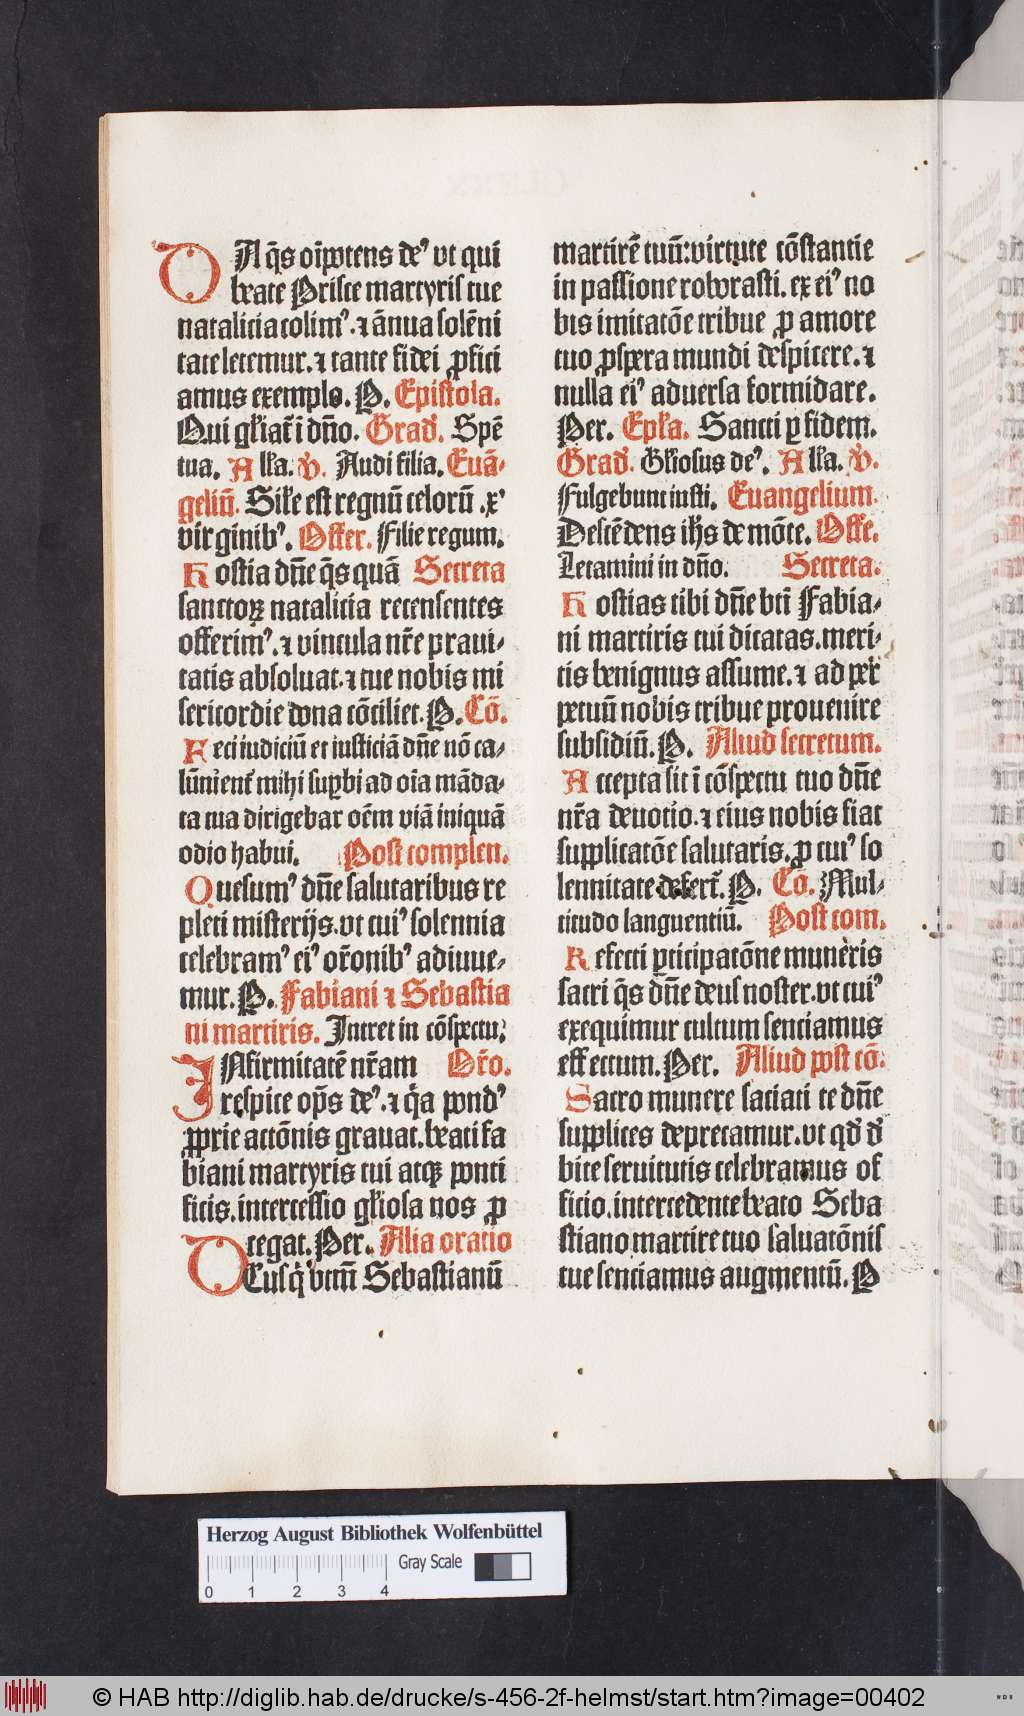 DA q̄s oīpotens deꝰ vt qui
beate Prisce martyris tue
natalicia colimꝰ. ⁊ ānua solēni
tate letemur. ⁊ tante fidei ꝓfici
amus exemplo. P. Epistola.
Qui gl̄iat̄ ī dn̄o. Grad̄. Spē
tua. All̄a. V̄. Audi filia. Euā⸗
geliū. Sil̄e est regnū celorū .xꝰ
virginibꝰ. Offer. Filie regum.
Hostia dn̄e q̄s quā Secreta
sanctoꝝ natalicia recensentes
offerimꝰ. ⁊ vincula nr̄e praui⸗
tatis absoluat. ⁊ tue nobis mi
sericordie dona cōciliet. P. Cō.
Feci iudiciū et iusticiā dn̄e nō ca⸗
lūnient̄ mihi suꝑbi ad oīa māda⸗
ta tua dirigebar oēm viā iniquā
odio habui. Post complen.
Quesumꝰ dn̄e salutaribus re
pleti misterijs. vt cuiꝰ solennia
celebramꝰ eiꝰ or̄onibꝰ adiuue⸗
mur. P. Fabiani ⁊ Sebastia
ni martiris. Intret in cōspectu.
INfirmitatē nr̄am Or̄o.
respice op̄s deꝰ. ⁊ q̄a pondꝰ
ꝓprie actōnis grauat. beati fa
biani martyris tui atqꝫ ponti
ficis. intercessio gl̄iosa nos ꝓ
tegat. Per. Alia oratio
DEus q̄ btm̄ Sebastianū
martirē tuū: virtute cōstantie
in passione roborasti. ex eiꝰ no
bis imitatōe tribue ꝓ amore
tuo ꝓspera mundi despicere. ⁊
nulla eiꝰ aduersa formidare.
Per. Epl̄a. Sancti ꝑ fidem.
Grad̄. Gl̄iosus deꝰ. All̄a. V̄.
Fulgebunt iusti. Euangelium.
Descēdens ih̄s de mōte. Offe.
Letamini in dn̄o. Secreta.
Hostias tibi dn̄e bt̄i Fabia⸗
ni martiris tui dicatas. meri⸗
tis benignus assume. ⁊ ad per
petuū nobis tribue prouenire
subsidiū. P. Aliud secretum.
Accepta sit ī cōspectu tuo dn̄e
nr̄a deuotio. ⁊ eius nobis fiat
supplicatōe salutaris. ꝓ cuiꝰ so
lennitate defert̄. P. Co. Mul⸗
titudo languentiū. Post com.
Refecti ꝑticipatōne muneris
sacri q̄s dn̄e deus noster. vt cuiꝰ
exequimur cultum senciamus
effectum. Per. Aliud post cō.
Sacro munere saciati te dn̄e
supplices deprecamur. vt qd̄ d̄
bite seruitutis celebramus of
ficio. intercedente beato Seba
stiano martire tuo saluatōnis
tue senciamus augmentū. P
Herzog August Bibliothek Wolfenbüttel
Gray Scale
0 1 2 3 4
© HAB http://diglib.hab.de/drucke/s-456-2f-helmst/start.htm?image=00402